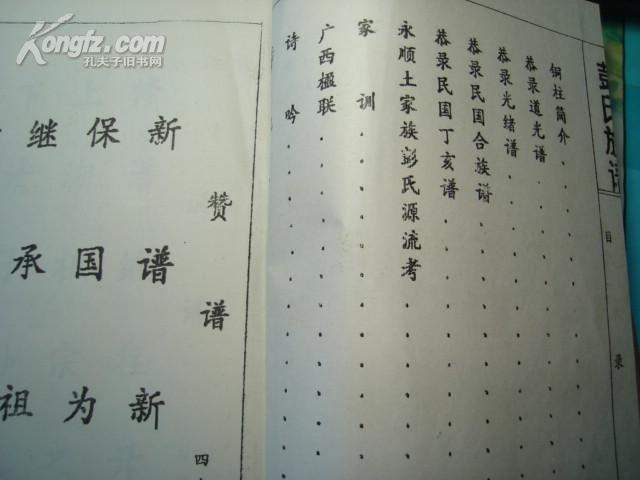 Kongfz.com
孔夫子旧书网
彭氏族谱
目录
铜柱简介
恭录道光谱
恭录光绪谱
恭录民国合族谱
恭录民国丁亥谱
永顺土家族彭氏源流考
家训
广西楹联
诗吟
赞谱
四
新谱新
保国为
继承祖